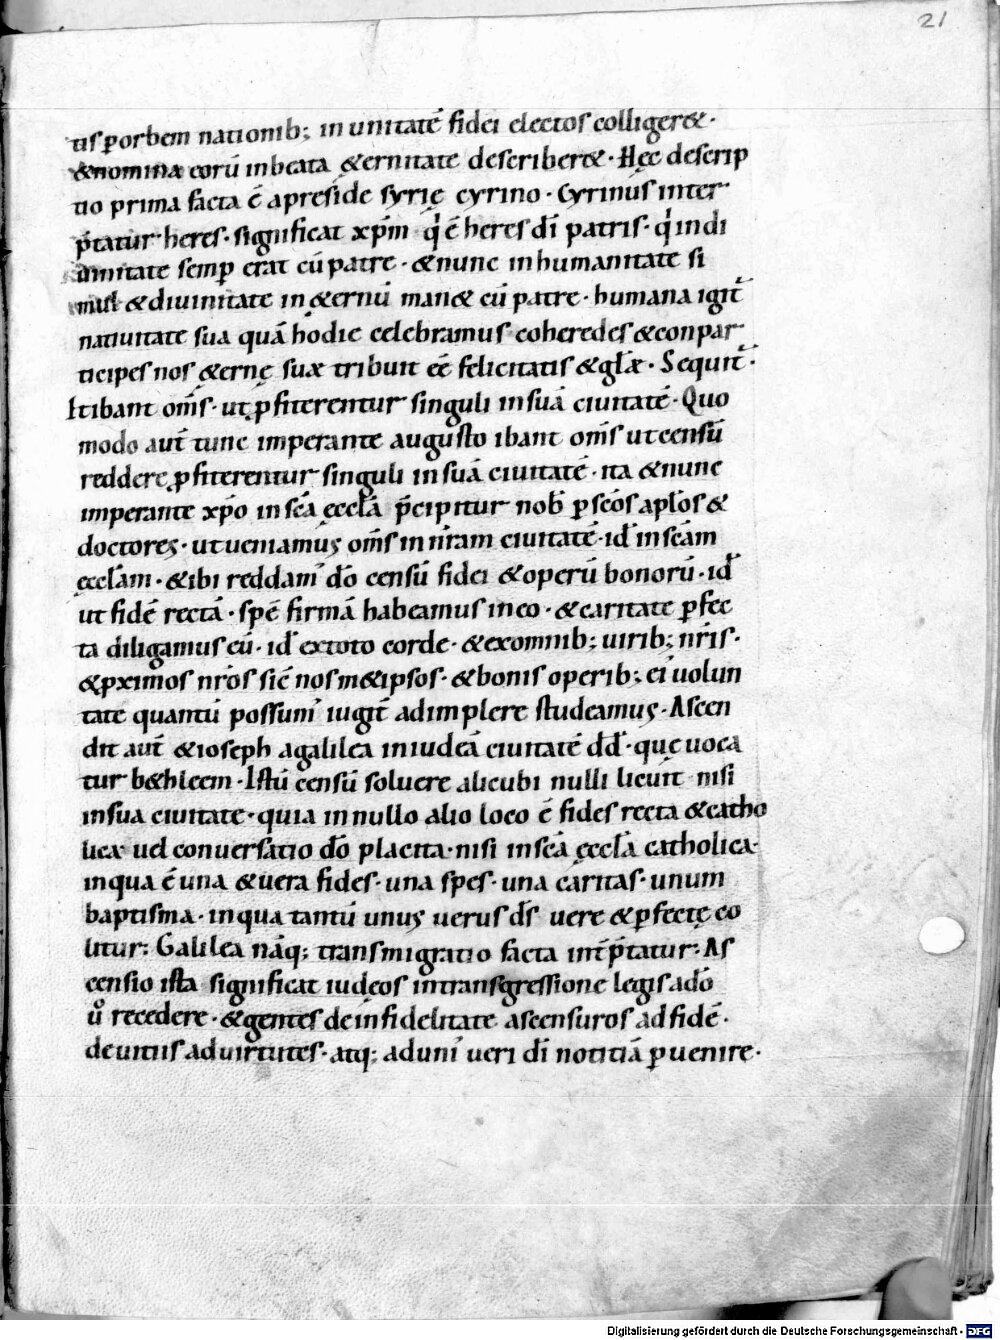 21
tis ꝑ orbem nationib; in unitatē fidei electos colliger&·
&nomina eorū in beata &ernitate describer&· Hęc descrip
tio prima facta ē a preside syrię cyrino· Cyrinus inter
p̄tatur heres· significat xp̄m q̇ ē heres dī patris· q̇ in di
uinitate semꝑ erat cū patre· &nunc in humanitate si
mul &diuinitate in &ernū man& cū patre· humana igit̄
natiuitate sua quā hodie celebramus coheredes &conpar
ticipes nos &ernę suæ tribuit eē felicitatis &gl̄æ· Sequit̄·
Et ibant om̄s· ut ꝓfiterentur singuli in suā ciuitatē· Quo
modo aut̄ tunc imperante augusto ibant om̄s ut censū
reddere ꝓfiterentur singuli in suā ciuitatē· ita &nunc
imperante xp̄o in sc̄a ęccl̄a p̄cipitur nob̄ ꝑ sc̄os apl̄os &
doctores· ut ueniamus om̄s in nr̄am ciuitatē· id̄ in sc̄am
ęccl̄am· &ibi reddam' dō censū fidei &operū bonorū· id̄
ut fidē rectā· spē firmā habeamus in eo· &caritate ꝑfec
ta diligamus eū· id̄ ex toto corde· &ex omnib; uirib; nr̄is·
&ꝓximos nr̄os sic̄ nosm&ipsos· &bonis operib; ei' uolun
tate quantū possum' iugit̄ adimplere studeamus· Ascen
dit aut̄ &ioseph a galilea in iudeā ciuitatē dd̄· quę uoca
tur b&hleem· Istū censū soluere alicubi nulli licuit nisi
in sua ciuitate· quia in nullo alio loco ē fides recta &catho
lica uel conuersatio dō placita· nisi in sc̄a ęccl̄a catholica·
in qua ē una &uera fides· una spes· una caritas· unum
baptisma· in qua tantū unus uerus d̄s uere &ꝑfectę co
litur; Galilea nāq; transmigratio facta int̄p̄tatur· As
censio ista significat iudęos in transgressione legis a dō
ů recedere· &gentes de infidelitate ascensuros ad fidē·
de uitiis ad uirtutes· atq; ad uni' ueri dī notitiā ꝑuenire·
Digitalisierung gefördert durch die Deutsche Forschungsgemeinschaft - DFG